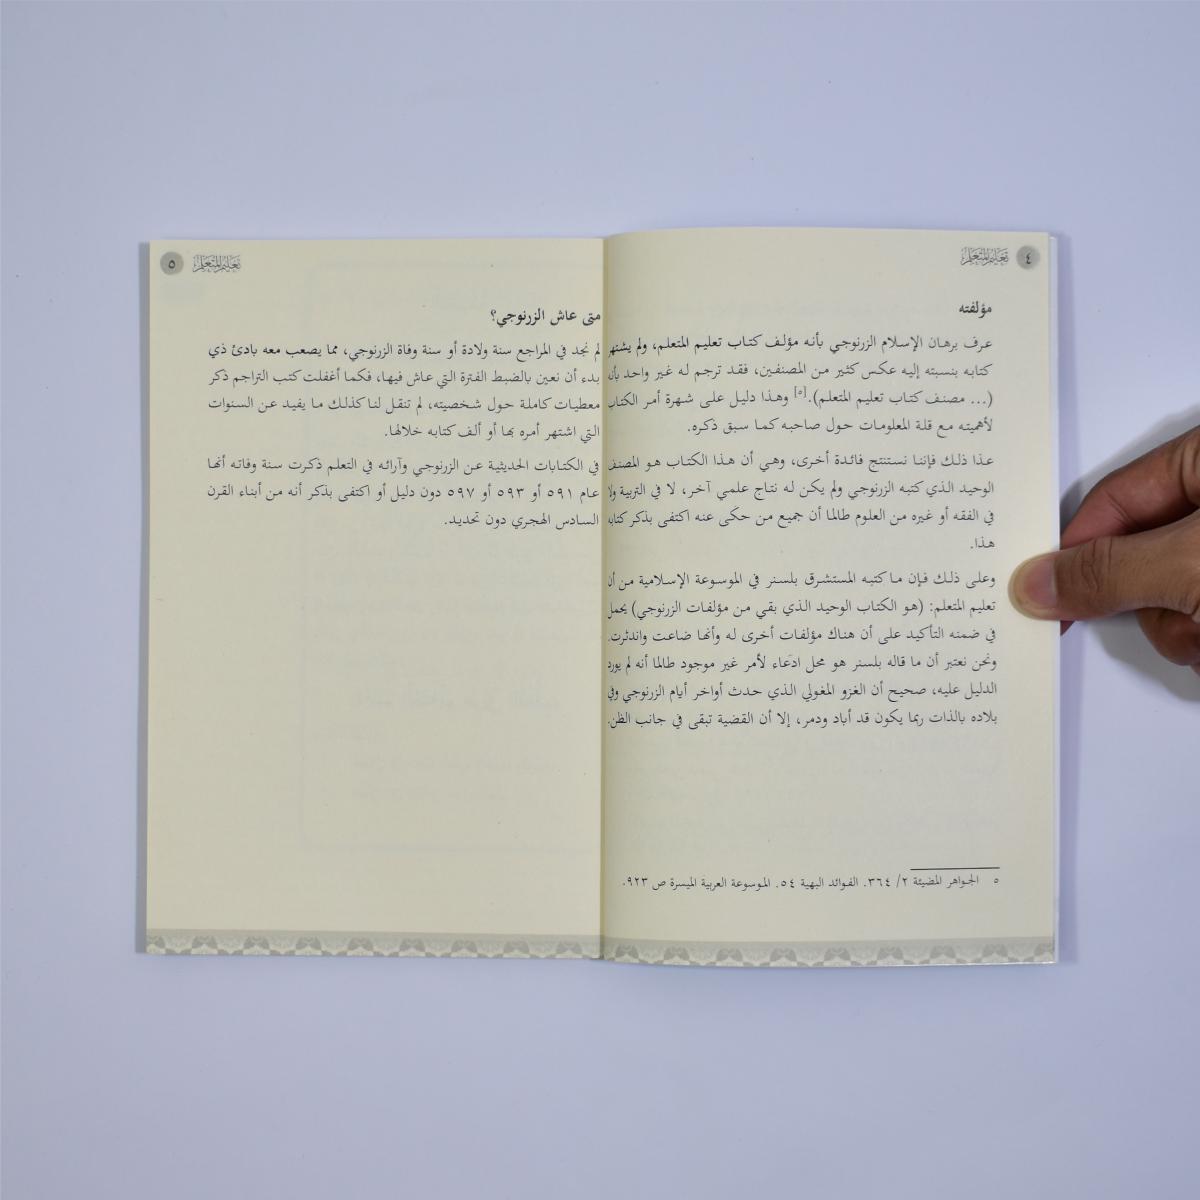 ٤ تعليم المتعلم
مؤلفته
عرف برهان الإسلام الزرنوجي بأنه مؤلف كتاب تعليم المتعلم، ولم يشتهر
كتابه بنسبته إليه عكس كثير من المصنفين، فقد ترجم له غير واحد بأنه
(... مصنف كتاب تعليم المتعلم).[٥] وهذا دليل على شهرة أمر الكتاب
لأهميته مع قلة المعلومات حول صاحبه كما سبق ذكره.
عذا ذلك فإننا نستنتج فائدة أخرى، وهي أن هذا الكتاب هو المصنف
الوحيد الذي كتبه الزرنوجي ولم يكن له نتاج علمي آخر، لا في التربية ولا
في الفقه أو غيره من العلوم طالما أن جميع من حكى عنه اكتفى بذكر كتابه
هذا.
وعلى ذلك فإن ما كتبه المستشرق بلسنر في الموسوعة الإسلامية من أن
تعليم المتعلم: (هو الكتاب الوحيد الذي بقي من مؤلفات الزرنوجي) يحمل
في ضمنه التأكيد على أن هناك مؤلفات أخرى له وأنها ضاعت واندثرت.
ونحن نعتبر أن ما قاله بلسنر هو محل ادعاء لأمر غير موجود طالما أنه لم يورد
الدليل عليه، صحيح أن الغزو المغولي الذي حدث أواخر أيام الزرنوجي وفي
بلاده بالذات ربما يكون قد أباد ودمر، إلا أن القضية تبقى في جانب الظن.
٥ الجواهر المضيئة ٢/ ٣٦٤. الفوائد البهية ٥٤. الموسوعة العربية الميسرة ص ٩٢٣.
تعليم المتعلم ٥
متى عاش الزرنوجي؟
لم نجد في المراجع سنة ولادة أو سنة وفاة الزرنوجي، مما يصعب معه بادئ ذي
بدء أن نعين بالضبط الفترة التي عاش فيها، فكما أغفلت كتب التراجم ذكر
معطيات كاملة حول شخصيته، لم تنقل لنا كذلك ما يفيد عن السنوات
التي اشتهر أمره بها أو ألف كتابه خلالها.
في الكتابات الحديثية عن الزرنوجي وآرائه في التعلم ذكرت سنة وفاته أنها
عام ٥٩١ أو ٥٩٣ أو ٥٩٧ دون دليل أو اكتفى بذكر أنه من أبناء القرن
السادس الهجري دون تحديد.